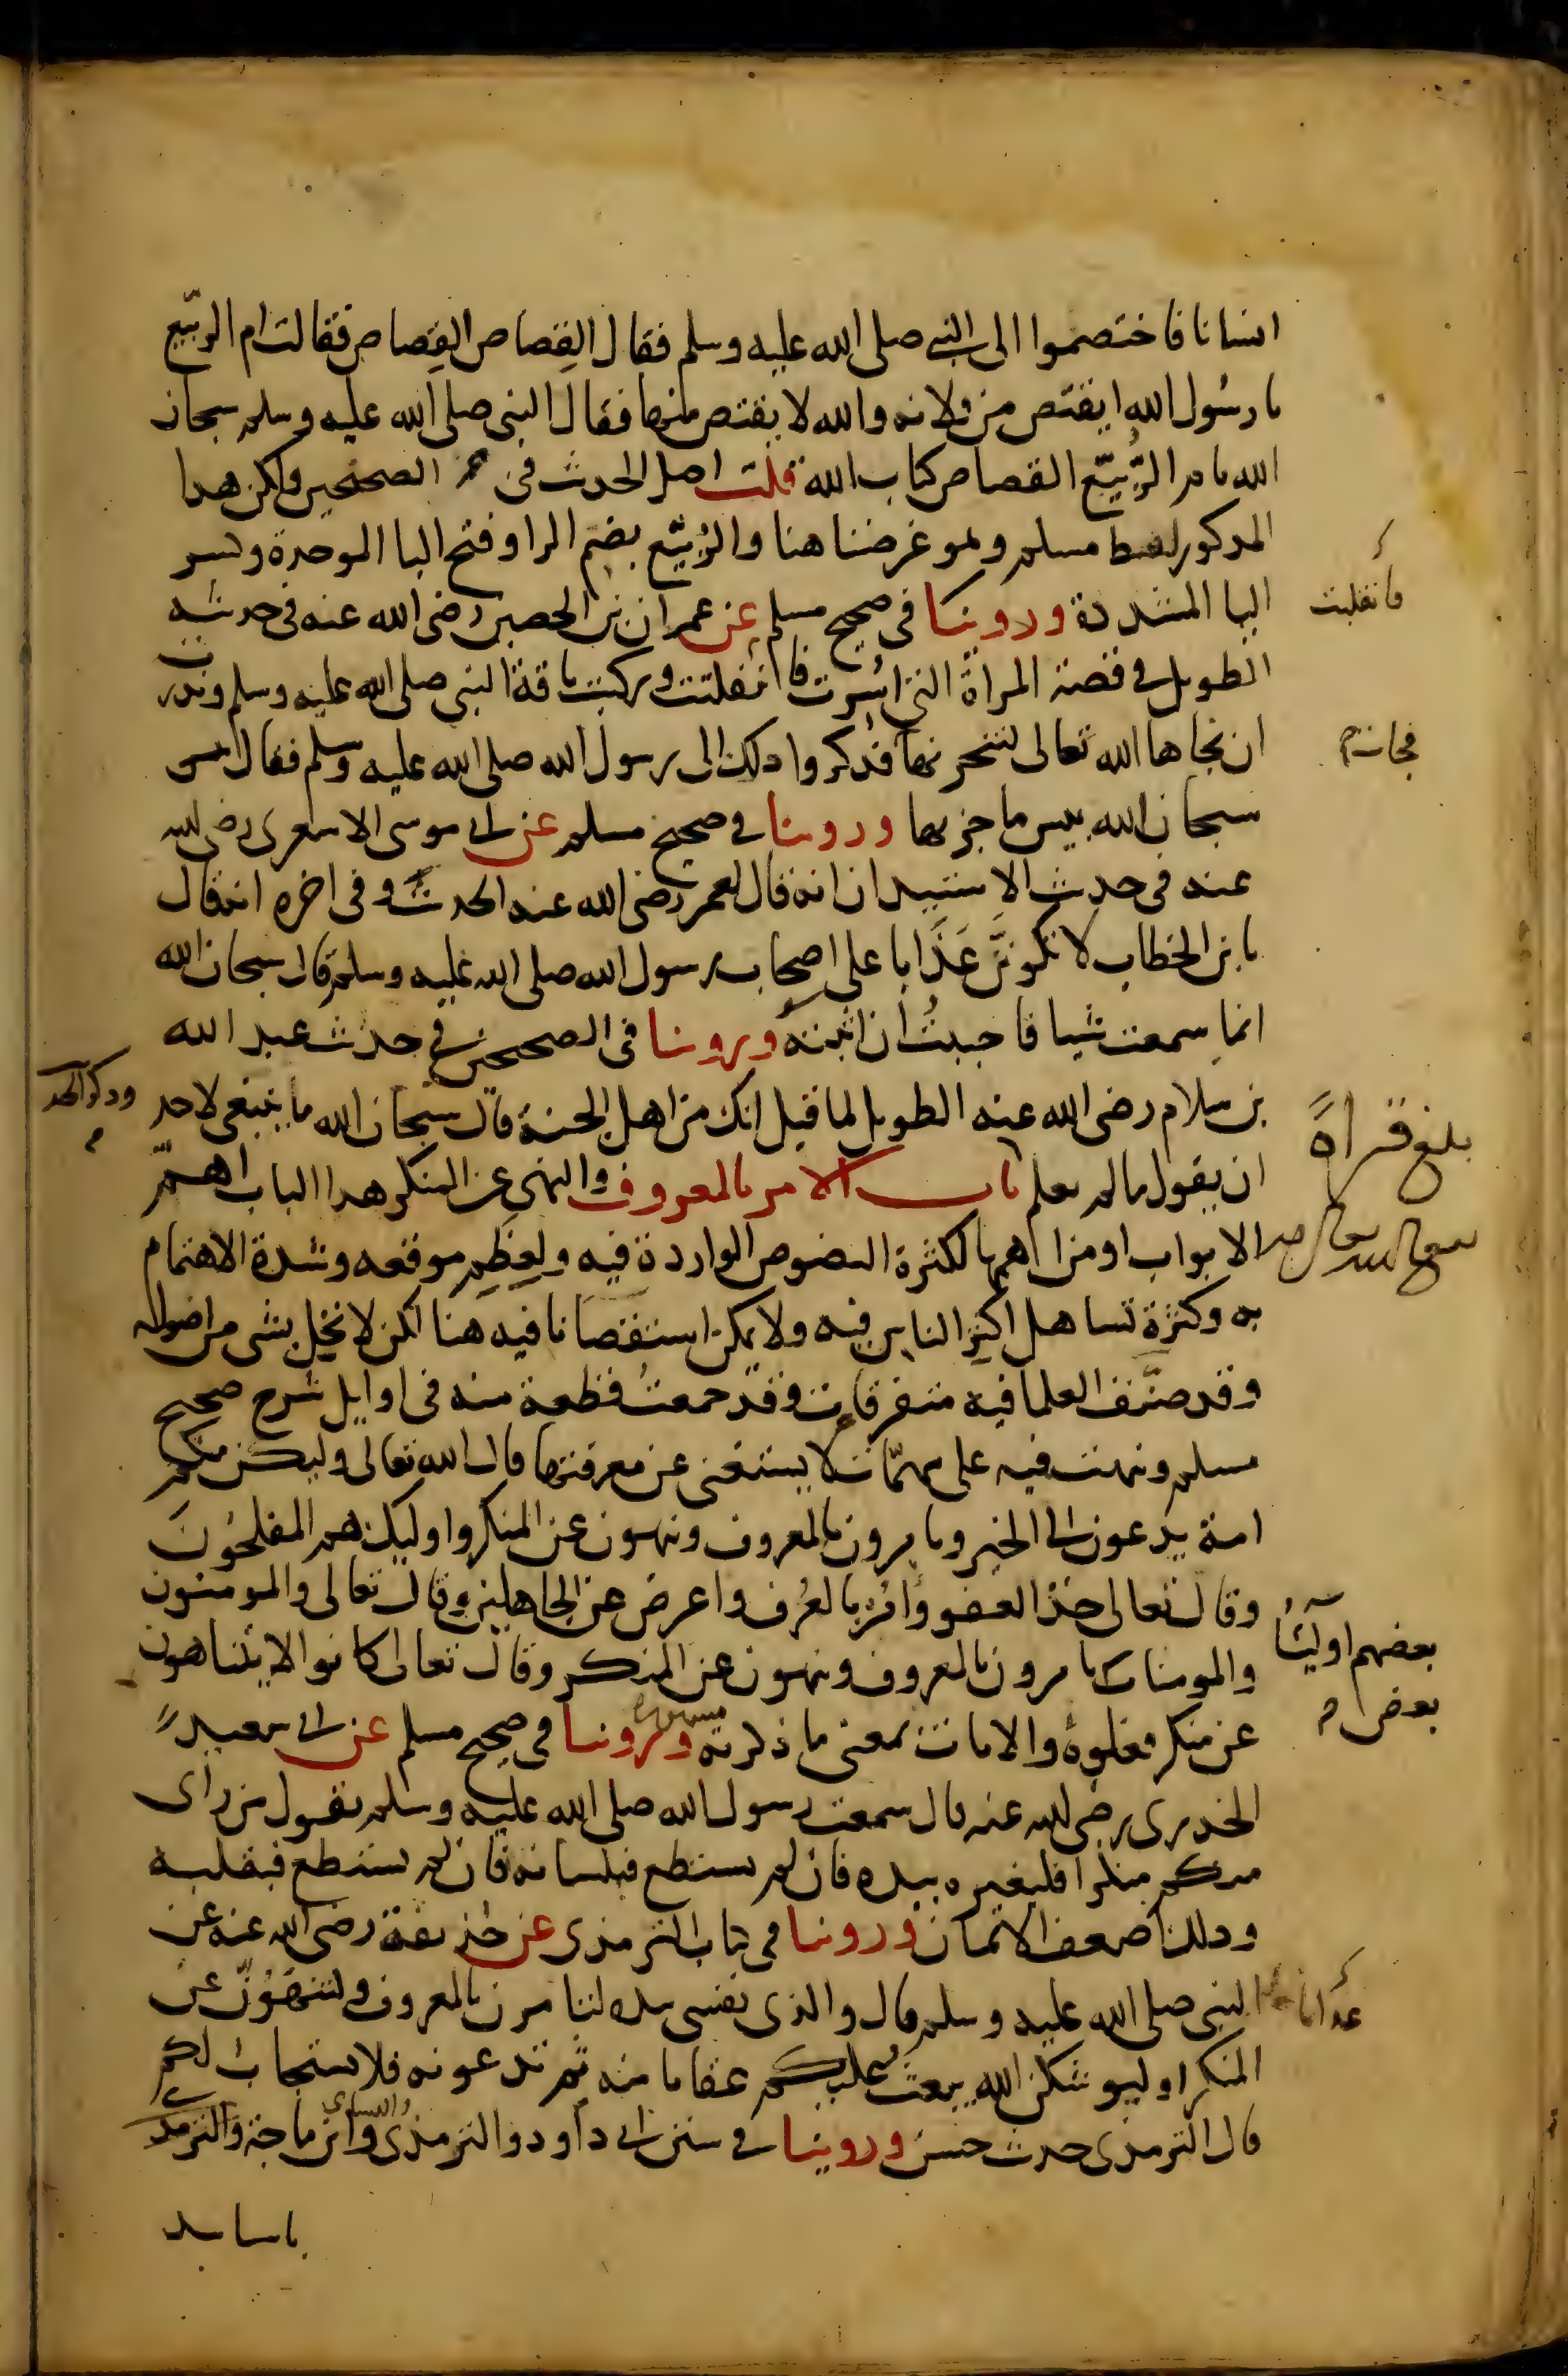 انسانا فاختصموا الى النبي صلى الله عليه وسلم فقال القِصاص القِصاص فقالت ام الربّيع
يا رسُول الله ايقتص من فلانه والله لا يقتص منها فقال النبي صلى الله عليه وسلم سبحان
الله يا ام الرُّبَيّع القصاص كتاب الله قلت اصل الحديث في الصحيحين ولكن هذا
المذكور لفظ مسلم وهو غرضنا هنا والرُبَيّع بضم الرا وفتح البا الموحدة وكسر
اليا المشددة وروينا في صحيح مسلم عن عمران بن الحصين رضى الله عنه في حديثه
فانفلتت
الطويل في قصة المراة التي اسُرت فانفلتت وركبت ناقة النبي صلى الله عليه وسلم ونذرت
ان نجاها الله تعالى لتنحرنها فذكروا ذلك الى رسول الله صلى الله عليه وسلم فقال
فجات
سبحان الله بيس ما جزتها وروينا في صحيح مسلم عن ابي موسى الاشعرى رضى الله
عنه في حديث الاستيذان انه قال لعمر رضى الله عنه الحديث وفي اخره انه قال
يا بن الخطاب لا تكونَنَّ عَذَابا على اصحاب رسول الله صلى الله عليه وسلم قال سبحان الله
انما سمعت شيا فاحببتُ ان اثبته وروينا في الصحيحين في حديث عبد الله
بن سلام رضى الله عنه الطويل لما قيل انك من اهل الجنة قال سبحان الله ما ينبغي لاحد
وذكر الحد
بلغ قراةً
ان يقول ما لم يعلم باب الامر بالمعروف والنهى عن المنكر هذا الباب اهمّ
الابواب او من اهمها لكثرة النصوص الواردة فيه ولعِظَم موقعه وشدة الاهتمام
به وكثرة تساهل اكثر الناس فيه ولا يمكن استقصا ما فيه هنا لكن لا نخل بشي من اصوله
وقد صنّف العلما فيه متفرقات وقد جمعتُ قطعة منه في اوايل شرح صحيح
مسلم ونبهت فيه على مهمّات لا يستغنى عن معرفتها قال الله تعالى ولتكن منكم
امة يدعون الى الخير ويامرون بالمعروف وينهون عن المنكر واوليك هم المفلحُونَ
وقال تعالى خذ العفو وأمُر بالعُرف واعرض عن الجاهلين وقال تعالى والمومنون
والمومنات يامرون بالمعروف وينهون عن المنكر وقال تعالى كانوا لا يتناهون
بعضهم اوليآُ
بعض
عن منكر فعلوهُ والايات بمعنى ما ذكرته مشهورة وروينا في صحيح مسلم عن ابي سعيد
الخدرى رضى الله عنه قال سمعت رسول الله صلى الله عليه وسلم يقول من راى
منكم منكرا فليغيره بيده فان لم يستطع فبلسانه فان لم يستطع فبقلبه
وذلك اضعف الايمان وروينا في كتاب الترمذى عن حُذيفة رضى الله عنه عن
النبي صلى الله عليه وسلم قال والذى نفسي بيده لتامرن بالمعروف ولتنهَوُنّ عن
عذابا
المنكر او ليوشكن الله يبعث عليكم عقابا منه ثم تدعونه فلا يستجاب لكم
قال الترمذى حديث حسن وروينا في سنن ابي داود والترمذى والنساي وابن ماجة والترمذى
باسانيد